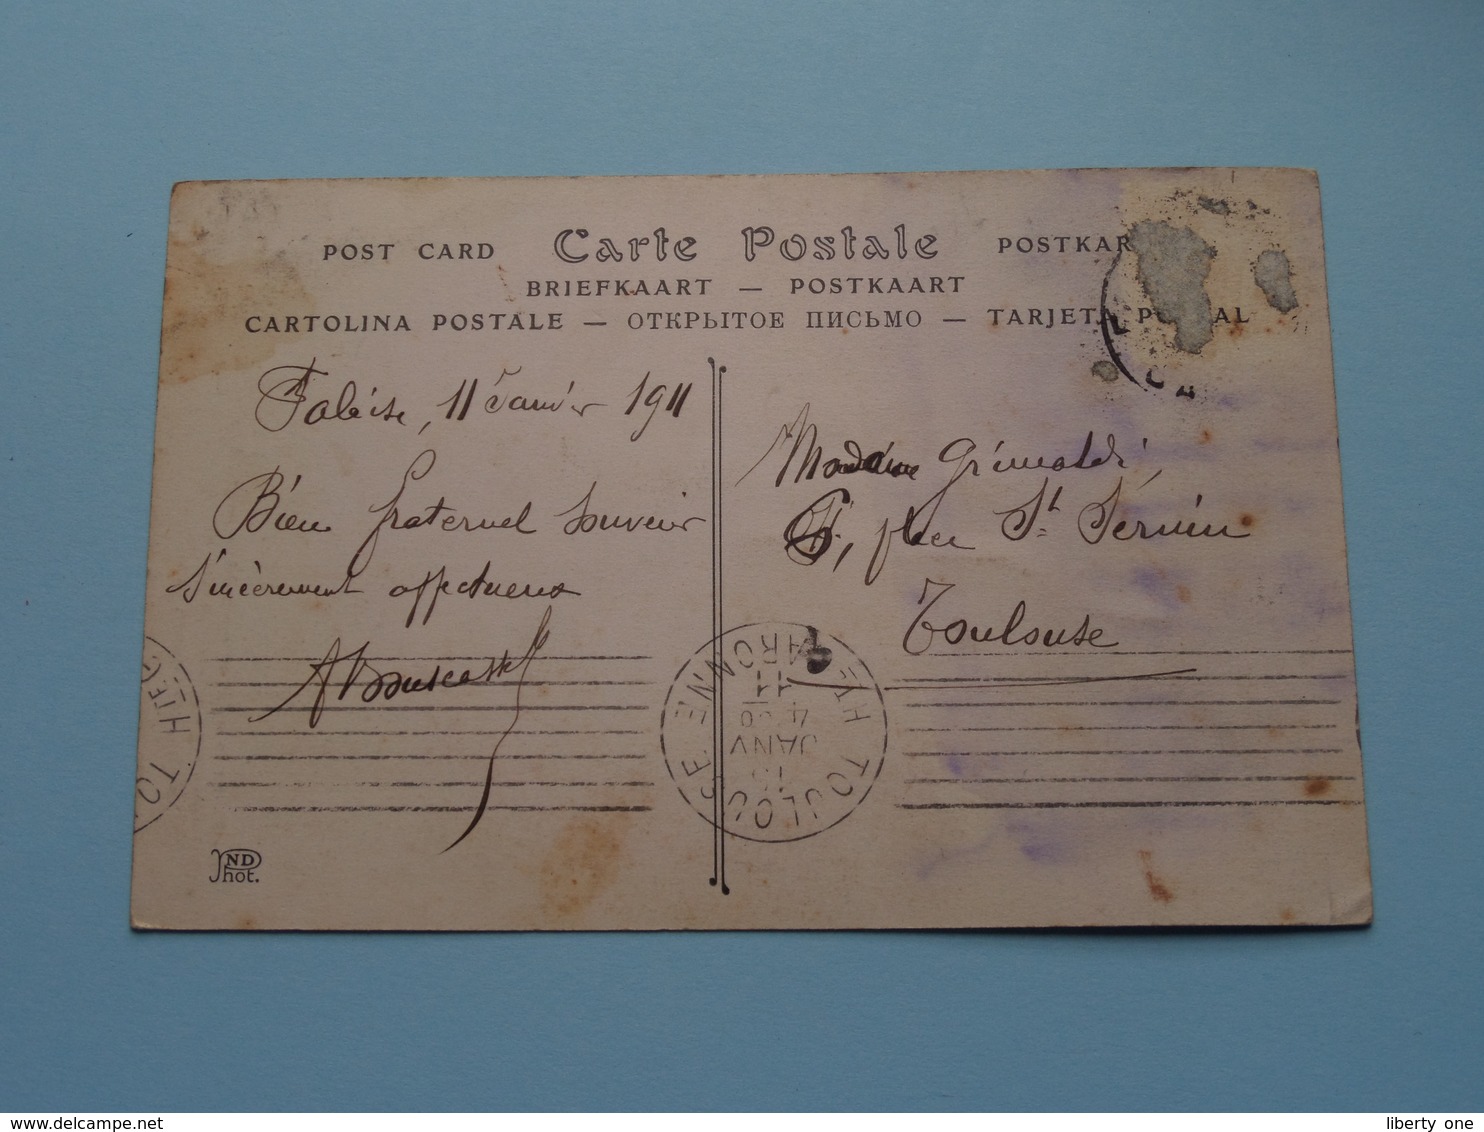 POST CARD Carte Postale POSTKAR
BRIEFKAART — POSTKAART
CARTOLINA POSTALE — ОТКРЫТОЕ ПИСЬМО — TARJETA P AL
Falaise, 11 Janvier 1911
Bien fraternel souvenir
sincèrement affectueux
Madame Grimaldi,
place St Sernin
Toulouse
TOULOUSE HTE GARONNE
JANV
11
ND
Phot.
liberty one